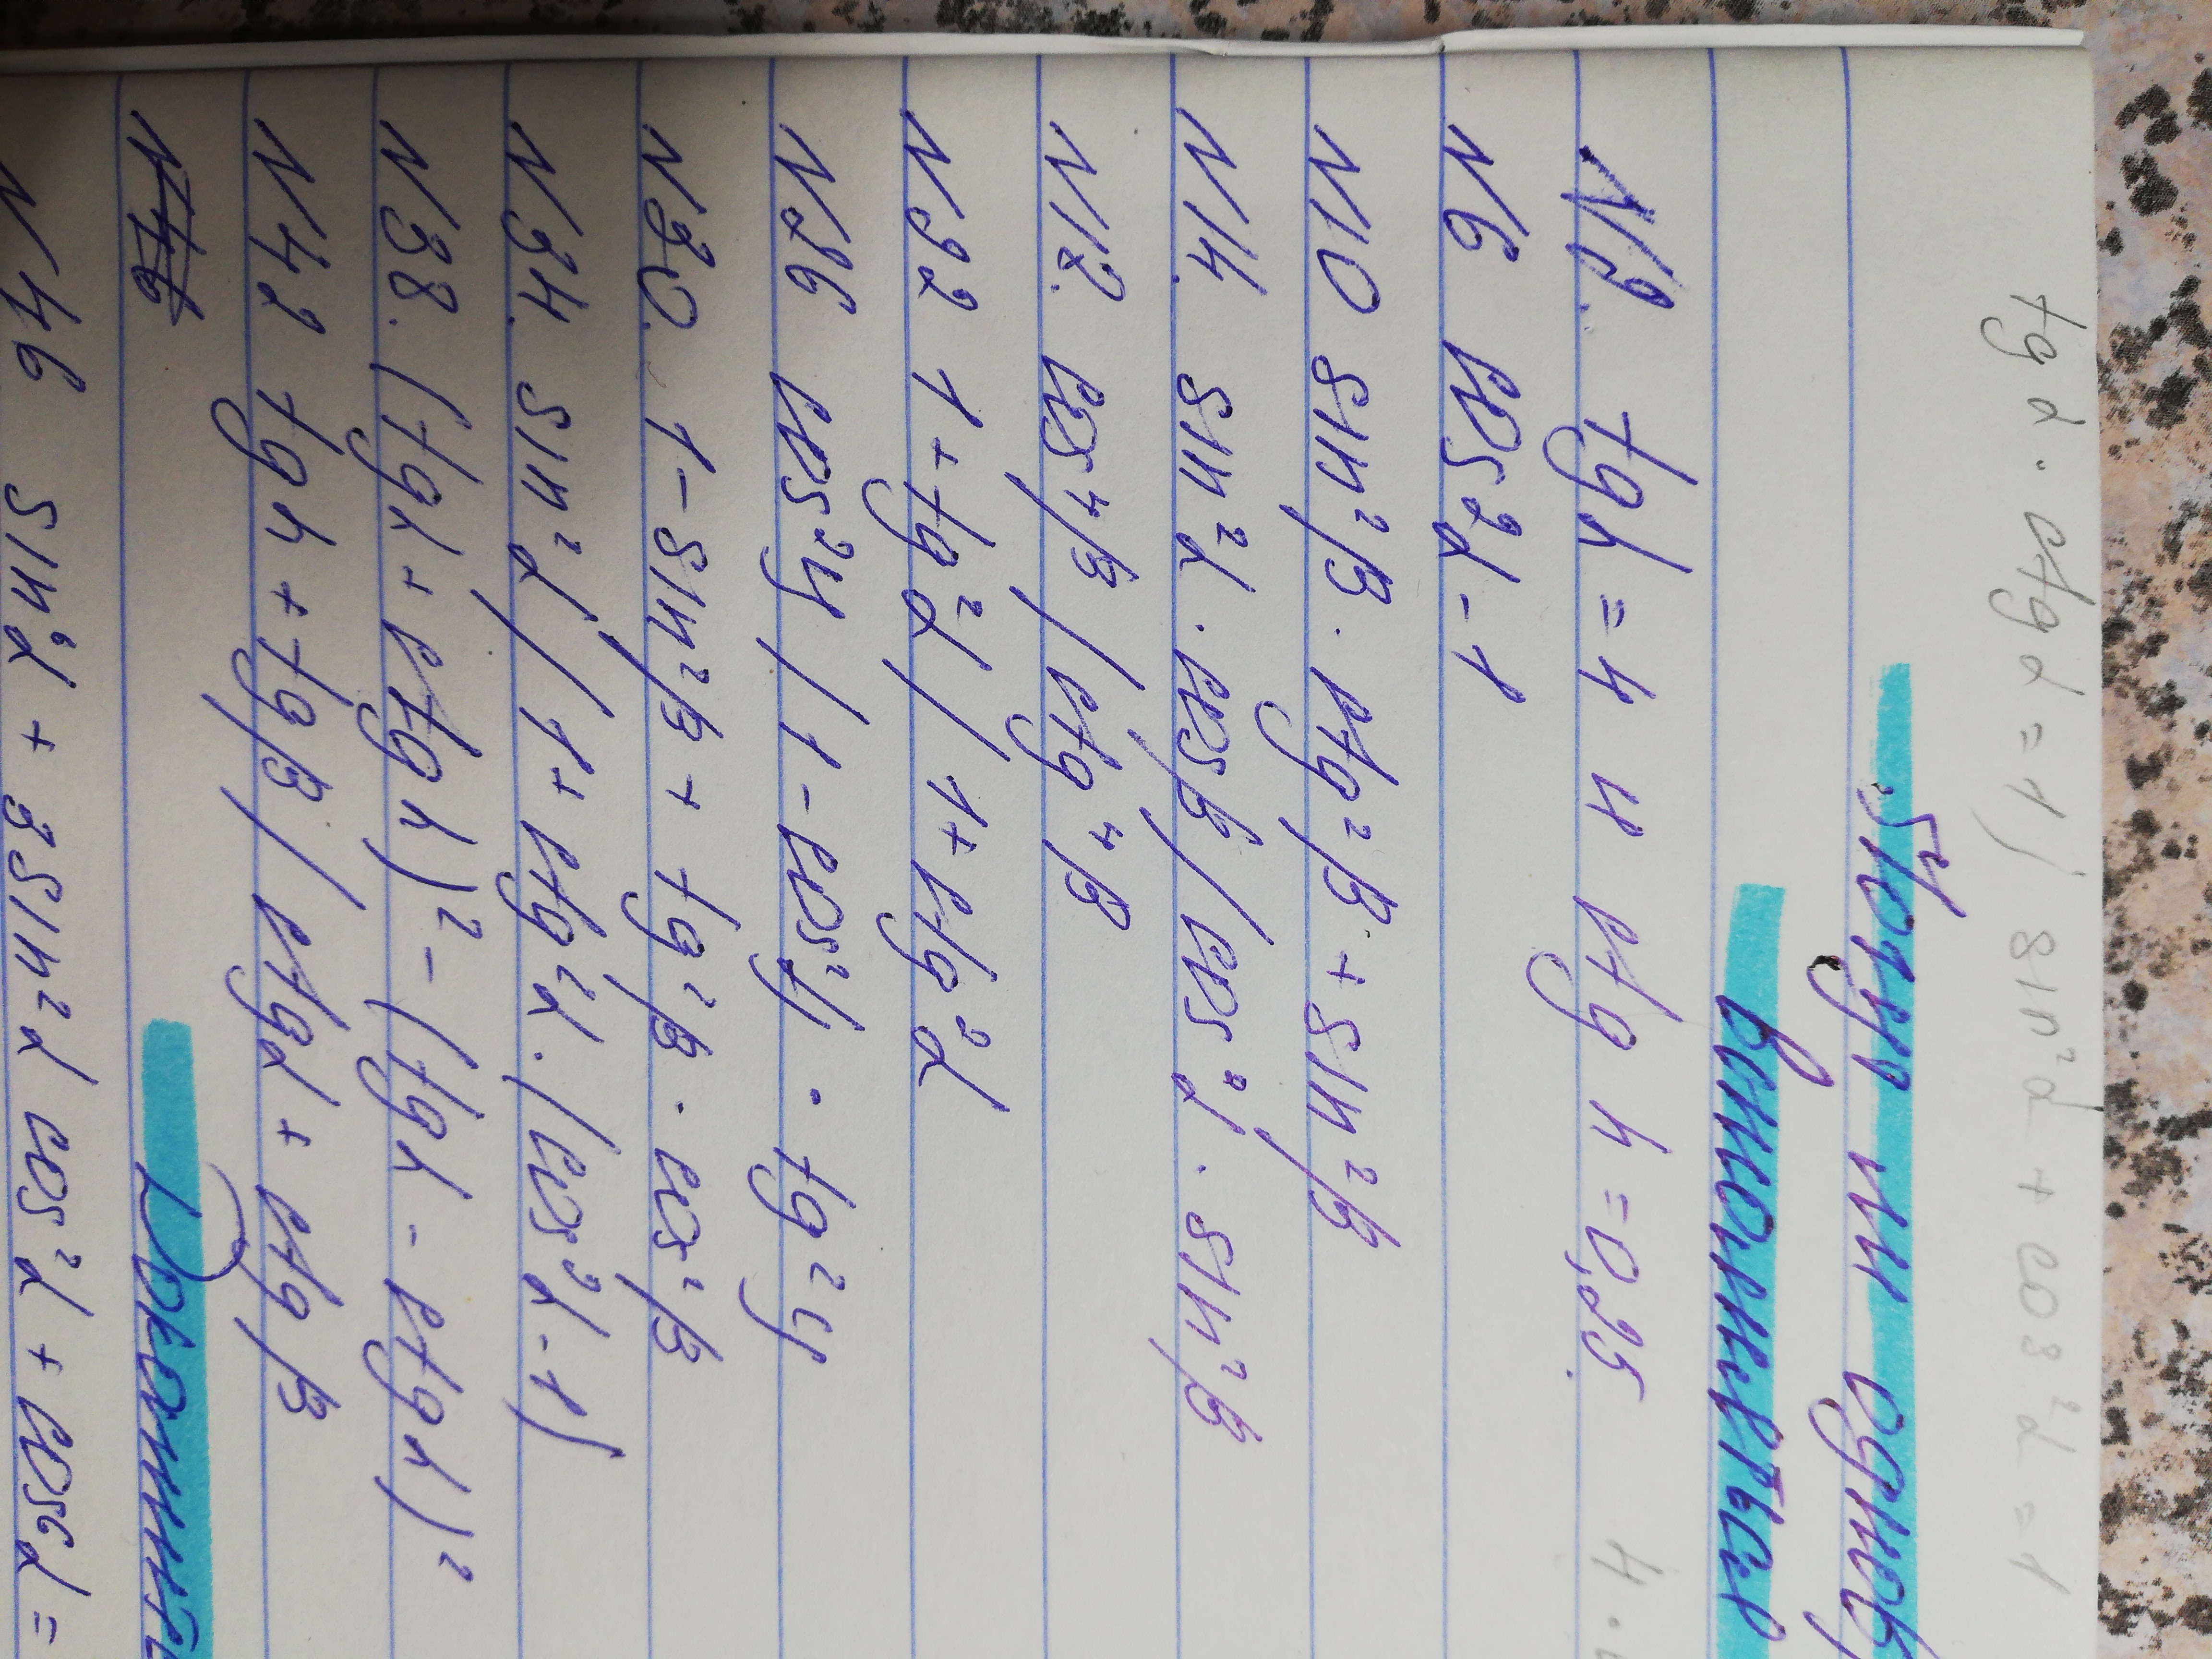 tg α · ctg α = 1 / sin²α + cos²α = 1
Могут ли одновр
выполняться
N2. tg α = 4 и ctg α = 0,25. · 4
N6 cos²α - 1
N10 sin²β · ctg²β + sin²β
N14. sin²α · cosβ / cos²α · sin²β
N18. cos⁴β / ctg⁴β
N22 1 + tg²α / 1 + ctg²α
N26 cos²y / 1 - cos²y · tg²y
N30. 1 - sin²β + tg²β · cos²β
N34. sin²α / 1 + ctg²α · (cos²α - 1)
N38. (tgα + ctgα)² - (tgα - ctgα)²
N42 tgα + tgβ / ctgα + ctgβ
N46
N46 sin⁶α + 3sin²α cos²α + cos⁶α =